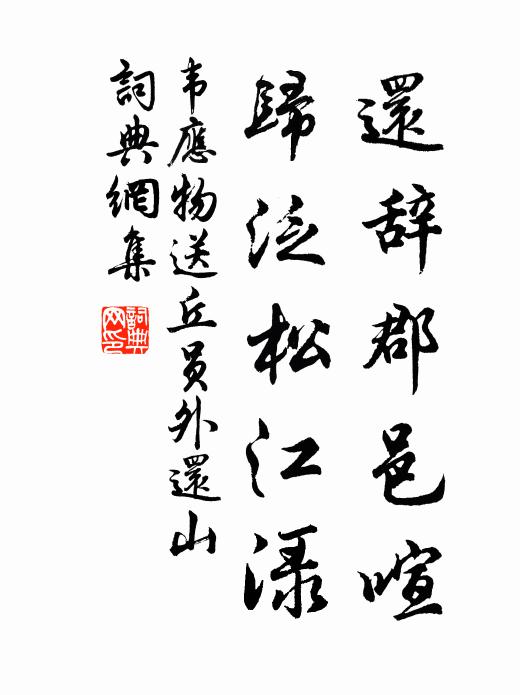 還辞郡邑喧
歸泛松江淥
韦應物送丘員外還山
詞典網集
詞典网印